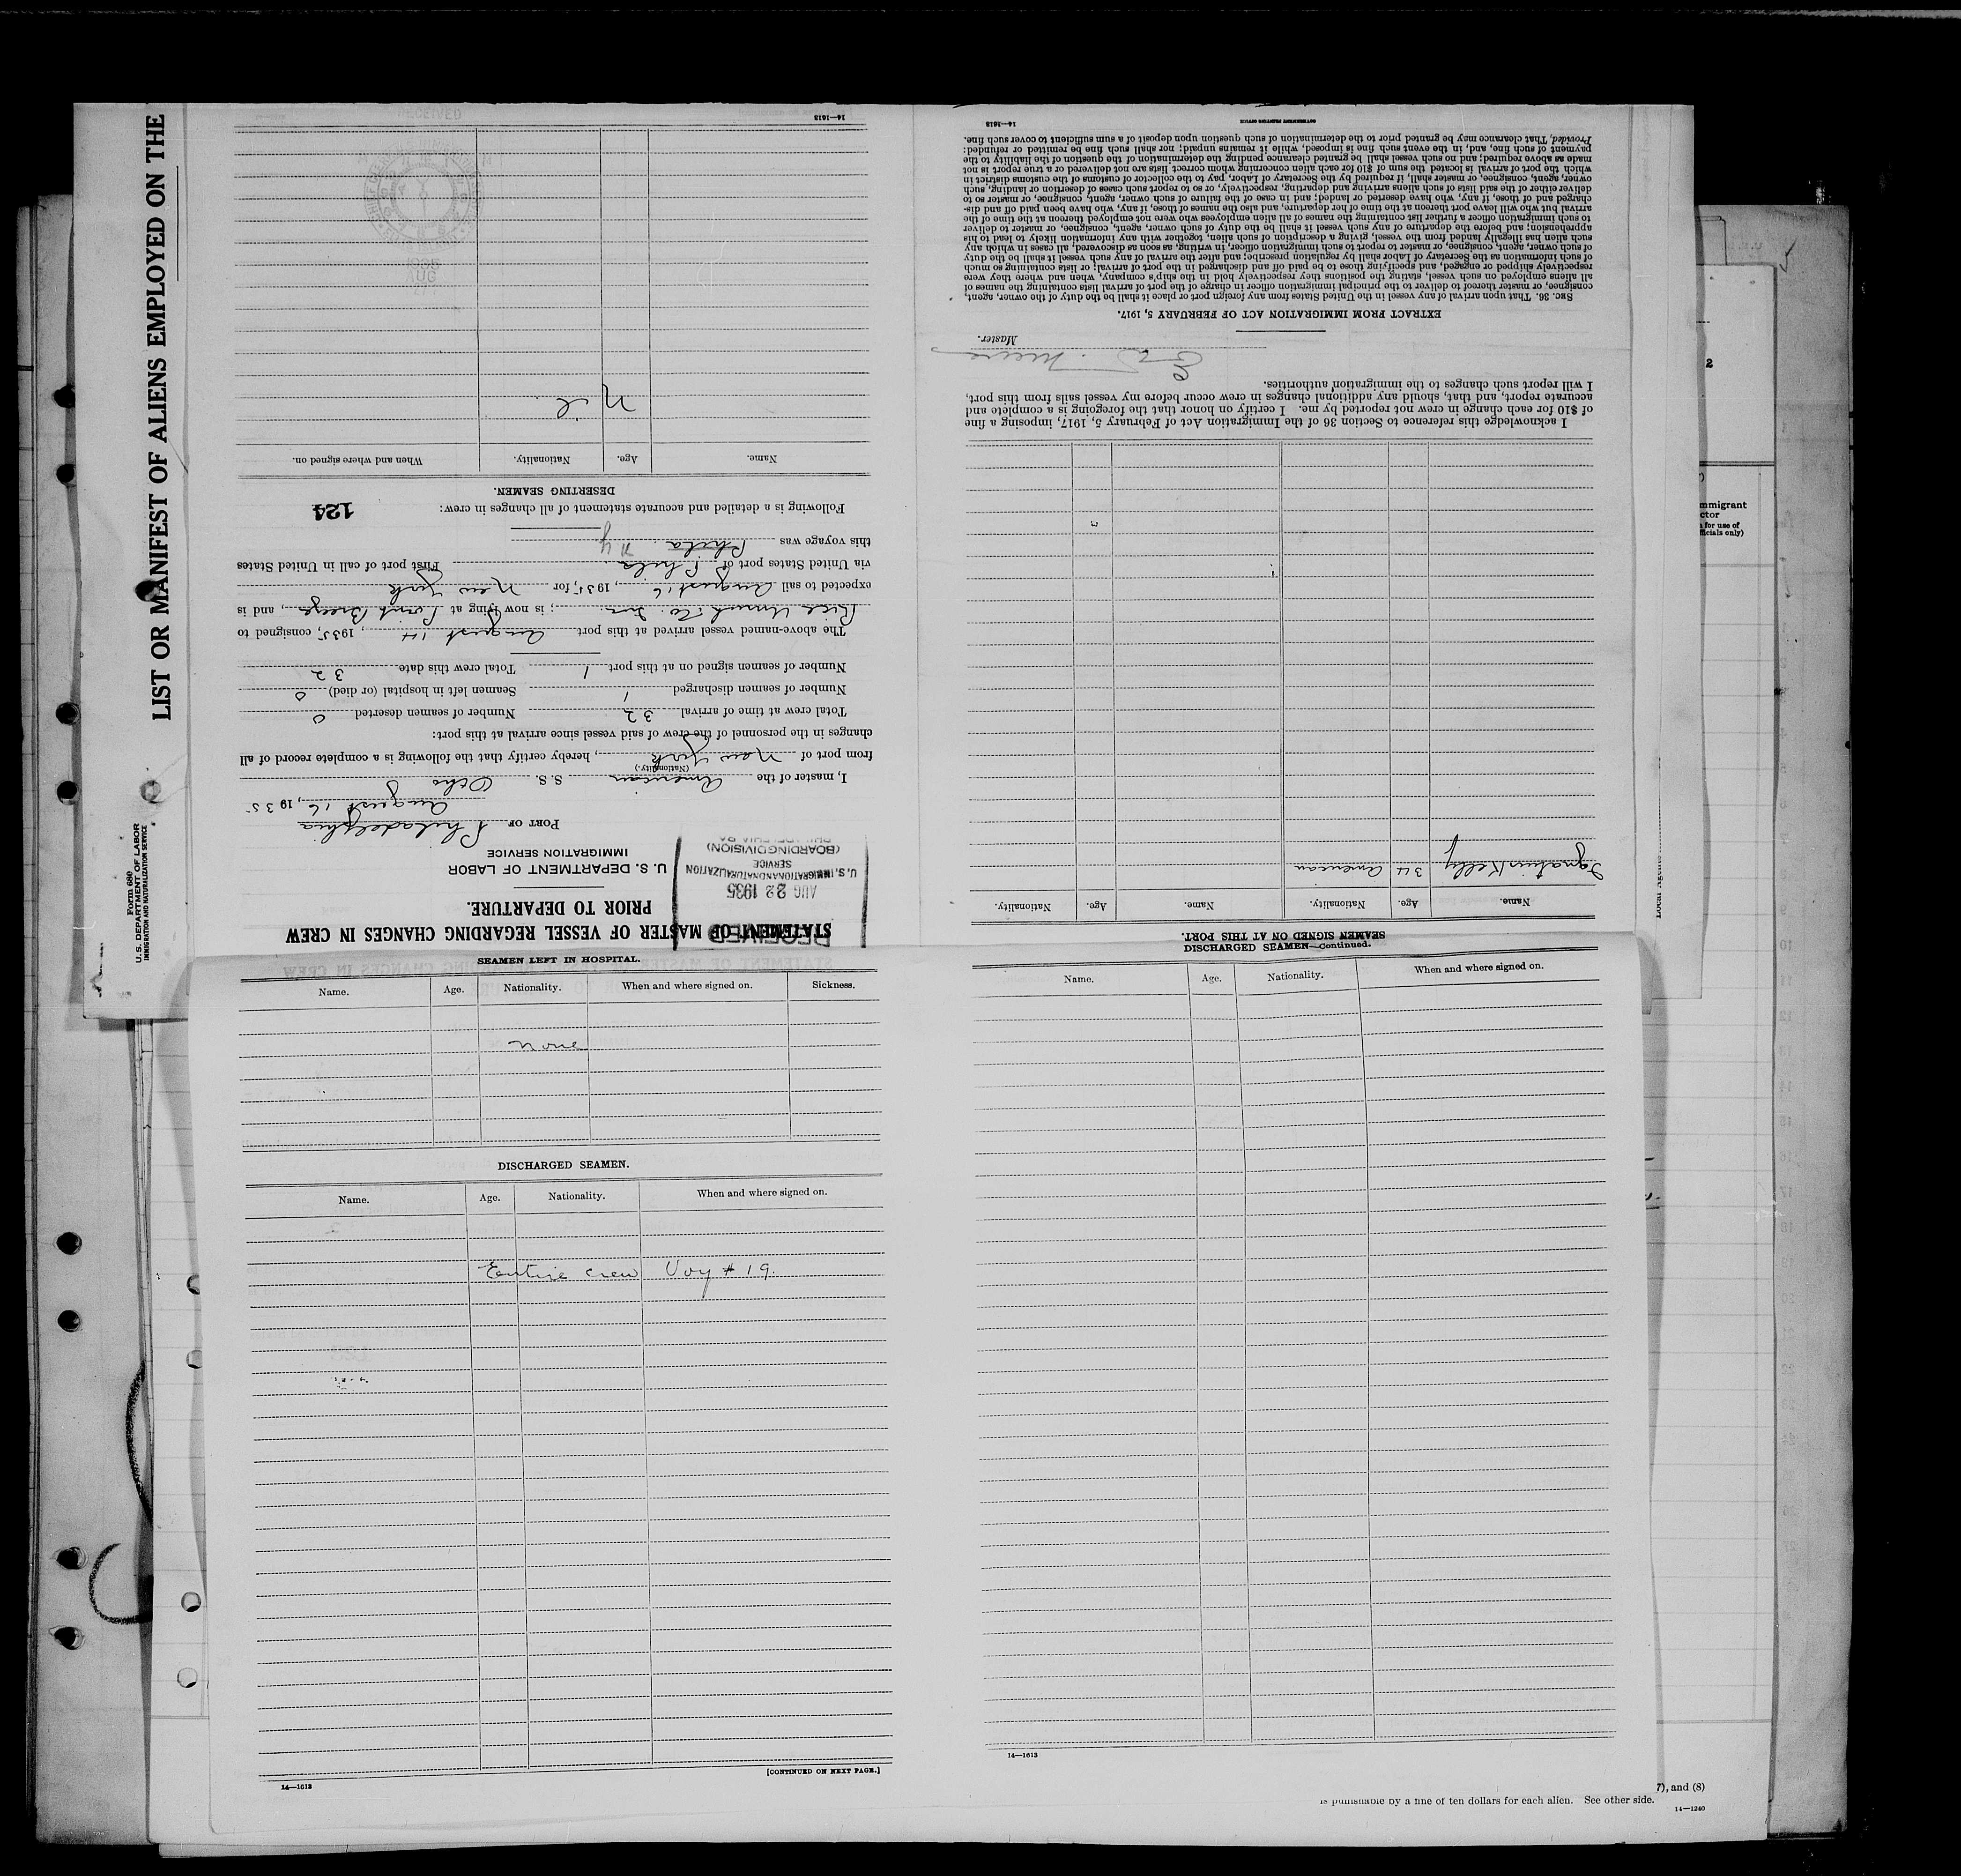 LIST OR MANIFEST OF ALIENS EMPLOYED ON THE
Form 680
U. S. DEPARTMENT OF LABOR
IMMIGRATION AND NATURALIZATION SERVICE
RECEIVED
AUG 22 1935
U. S. IMMIGRATION AND NATURALIZATION
SERVICE
(BOARDING DIVISION)
PHILADELPHIA PA
STATEMENT OF MASTER OF VESSEL REGARDING CHANGES IN CREW
PRIOR TO DEPARTURE.
U. S. DEPARTMENT OF LABOR
IMMIGRATION SERVICE
PORT OF Philadelphia
August 16, 1935
I, master of the American S. S. Ohio
(Nationality.)
from port of New York, hereby certify that the following is a complete record of all
changes in the personnel of the crew of said vessel since arrival at this port:
Total crew at time of arrival 32 Number of seamen deserted 0
Number of seamen discharged 1 Seamen left in hospital (or died) 0
Number of seamen signed on at this port 1 Total crew this date 32
The above-named vessel arrived at this port August 14, 1935, consigned to
Rice Unruh Co. Inc; is now lying at Point Breeze, and is
expected to sail August 16, 1935, for New York
via United States port of Phila. First port of call in United States
this voyage was Phila. N Y
Following is a detailed and accurate statement of all changes in crew:
124
DESERTING SEAMEN.
Name. Age. Nationality. When and where signed on.
Nil
14—1613
SEAMEN SIGNED ON AT THIS PORT.
Name. Age. Nationality. Name. Age. Nationality.
Ignatius Kelly 34 American
I acknowledge this reference to Section 36 of the Immigration Act of February 5, 1917, imposing a fine
of $10 for each change in crew not reported by me. I certify on honor that the foregoing is a complete and
accurate report, and that, should any additional changes in crew occur before my vessel sails from this port,
I will report such changes to the immigration authorities.
Master.
EXTRACT FROM IMMIGRATION ACT OF FEBRUARY 5, 1917.
SEC. 36. That upon arrival of any vessel in the United States from any foreign port or place it shall be the duty of the owner, agent,
consignee, or master thereof to deliver to the principal immigration officer in charge of the port of arrival lists containing the names of
all aliens employed on such vessel, stating the positions they respectively hold in the ship's company, when and where they were
respectively shipped or engaged, and specifying those to be paid off and discharged in the port of arrival; or lists containing so much
of such information as the Secretary of Labor shall by regulation prescribe; and after the arrival of any such vessel it shall be the duty
of such owner, agent, consignee, or master to report to such immigration officer, in writing, as soon as discovered, all cases in which any
such alien has illegally landed from the vessel, giving a description of such alien, together with any information likely to lead to his
apprehension; and before the departure of any such vessel it shall be the duty of such owner, agent, consignee, or master to deliver
to such immigration officer a further list containing the names of all alien employees who were not employed thereon at the time of the
arrival but who will leave port thereon at the time of her departure, and also the names of those, if any, who have been paid off and dis-
charged and of those, if any, who have deserted or landed; and in case of the failure of such owner, agent, consignee, or master so to
deliver either of the said lists of such aliens arriving and departing, respectively, or so to report such cases of desertion or landing, such
owner, agent, consignee, or master shall, if required by the Secretary of Labor, pay to the collector of customs of the customs district in
which the port of arrival is located the sum of $10 for each alien concerning whom correct lists are not delivered or a true report is not
made as above required; and no such vessel shall be granted clearance pending the determination of the question of the liability to the
payment of such fine, and, in the event such fine is imposed, while it remains unpaid; nor shall such fine be remitted or refunded:
Provided, That clearance may be granted prior to the determination of such question upon deposit of a sum sufficient to cover such fine.
GOVERNMENT PRINTING OFFICE
14—1613
SEAMEN LEFT IN HOSPITAL.
Name. Age. Nationality. When and where signed on. Sickness.
None
DISCHARGED SEAMEN.
Name. Age. Nationality. When and where signed on.
Entire crew Voy # 19.
[CONTINUED ON NEXT PAGE.]
14—1613
DISCHARGED SEAMEN—Continued.
Name. Age. Nationality. When and where signed on.
14—1613
7), and (8)
is punishable by a fine of ten dollars for each alien. See other side.
14—1240